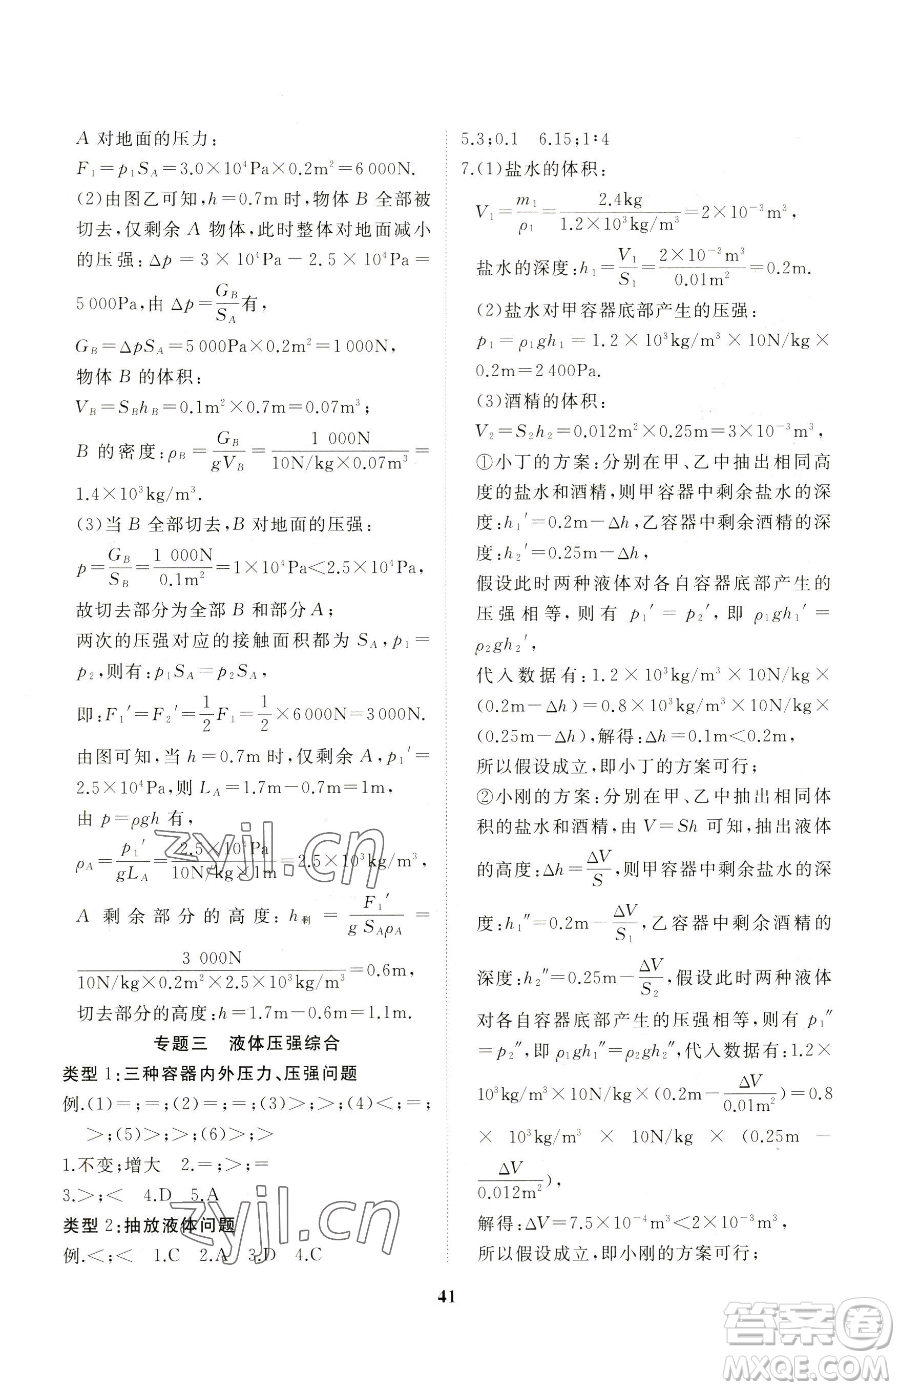 A 对地面的压力:
F₁=p₁S_A=3.0×10⁴Pa×0.2m²=6 000N.
(2)由图乙可知,h=0.7m时,物体B全部被
切去,仅剩余A物体,此时整体对地面减小
的压强:Δp=3×10⁴Pa-2.5×10⁴Pa=
5 000Pa,由Δp=G_B/S_A有,
G_B=ΔpS_A=5 000Pa×0.2m²=1 000N,
物体B的体积:
V_B=S_Bh_B=0.1m²×0.7m=0.07m³;
B的密度:ρ_B=G_B/gV_B=1 000N/10N/kg×0.07m³=
1.4×10³kg/m³.
(3)当B全部切去,B对地面的压强:
p=G_B/S_B=1 000N/0.1m²=1×10⁴Pa<2.5×10⁴Pa,
故切去部分为全部B和部分A;
两次的压强对应的接触面积都为S_A,p₁=
p₂,则有:p₁S_A=p₂S_A,
即:F₁′=F₂′=1/2F₁=1/2×6 000N=3 000N.
由图可知,当h=0.7m时,仅剩余A,p₁′=
2.5×10⁴Pa,则L_A=1.7m-0.7m=1m,
由p=ρgh有,
ρ_A=p₁′/gL_A=2.5×10⁴Pa/10N/kg×1m=2.5×10³kg/m³,
A剩余部分的高度:h剩=F₁′/gS_Aρ_A=
3 000N/10N/kg×0.2m²×2.5×10³kg/m³=0.6m,
切去部分的高度:h=1.7m-0.6m=1.1m.
专题三 液体压强综合
类型1:三种容器内外压力、压强问题
例.(1)=;=;(2)=;=;(3)>;>;(4)<;=;
>;(5)>;>;(6)>;>
1.不变;增大 2.=;>;=
3.>;< 4.D 5.A
类型2:抽放液体问题
例.<;< 1.C 2.A 3.D 4.C
5.3;0.1 6.15;1∶4
7.(1)盐水的体积:
V₁=m₁/ρ₁=2.4kg/1.2×10³kg/m³=2×10⁻³m³,
盐水的深度:h₁=V₁/S₁=2×10⁻³m³/0.01m²=0.2m.
(2)盐水对甲容器底部产生的压强:
p₁=ρ₁gh₁=1.2×10³kg/m³×10N/kg×
0.2m=2 400Pa.
(3)酒精的体积:
V₂=S₂h₂=0.012m²×0.25m=3×10⁻³m³,
①小丁的方案:分别在甲、乙中抽出相同高
度的盐水和酒精,则甲容器中剩余盐水的深
度:h₁′=0.2m-Δh,乙容器中剩余酒精的深
度:h₂′=0.25m-Δh,
假设此时两种液体对各自容器底部产生的
压强相等,则有p₁′=p₂′,即ρ₁gh₁′=
ρ₂gh₂′,
代入数据有:1.2×10³kg/m³×10N/kg×
(0.2m-Δh)=0.8×10³kg/m³×10N/kg×
(0.25m-Δh),解得:Δh=0.1m<0.2m,
所以假设成立,即小丁的方案可行;
②小刚的方案:分别在甲、乙中抽出相同体
积的盐水和酒精,由V=Sh可知,抽出液体
的高度:Δh=ΔV/S,则甲容器中剩余盐水的深
度:h₁″=0.2m-ΔV/S₁,乙容器中剩余酒精的
深度:h₂″=0.25m-ΔV/S₂,假设此时两种液体
对各自容器底部产生的压强相等,有p₁″
=p₂″,即ρ₁gh₁″=ρ₂gh₂″,代入数据有:1.2×
10³kg/m³×10N/kg×(0.2m-ΔV/0.01m²)=0.8
×10³kg/m³×10N/kg×(0.25m-
ΔV/0.012m²),
解得:ΔV=7.5×10⁻⁴m³<2×10⁻³m³,
所以假设成立,即小刚的方案可行;
41
zyjl.cn
zyjl.cn
答案圈
MXQE.COM